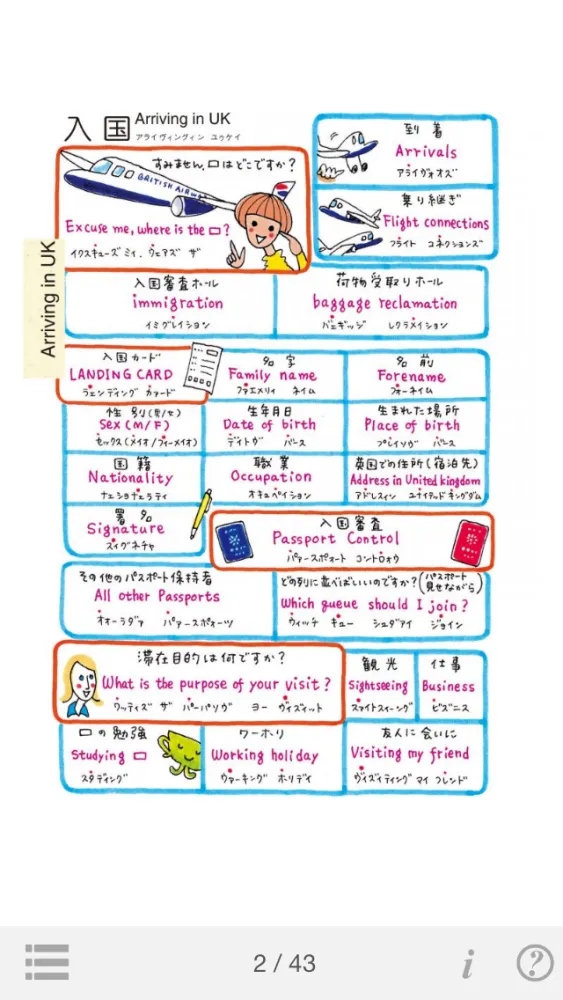 入国 Arriving in UK
アライヴィングィン ユゥケイ
Arriving in UK
すみません、□はどこですか?
BRITISH AIRWAYS
Excuse me, where is the □?
イクスキューズ ミィ、ウェアズ ザ
到着
Arrivals
アライヴォオズ
乗り継ぎ
Flight connections
フライト コネクションズ
入国審査ホール
immigration
イミグレイション
荷物受取りホール
baggage reclamation
バェギッジ レクラメイション
入国カード
LANDING CARD
ラェンディング カァード
名字
Family name
ファエメリィ ネイム
名前
Forename
フォーネイム
性別(男/女)
Sex(M/F)
セックス(メイオ/フィーメイオ)
生年月日
Date of birth
デイトヴ バース
生まれた場所
Place of birth
プレイソヴ バース
国籍
Nationality
ナェショナェラティ
職業
Occupation
オキュペイション
英国での住所(宿泊先)
Address in United kingdom
アドレスィン ユナイテッド キングダム
署名
Signature
スィグネチャ
入国審査
Passport Control
パァースポォート コントロォウ
その他のパスポート保持者
All other Passports
オォーラダァ パァースポォーツ
どの列に並べばいいのですか?(パスポート見せながら)
Which queue should I join?
ウィッチ キュー シュダアイ ジョイン
滞在目的は何ですか?
What is the purpose of your visit?
ワッティズ ザ パーパソヴ ヨー ヴィズィット
観光
Sightseeing
スアイトスイーング
仕事
Business
ビズニス
□の勉強
Studying □
スタディング
ワーホリ
Working holiday
ウァーキング ホリデイ
友人に会いに
Visiting my friend
ヴィズィティング マイ フレンド
2 / 43